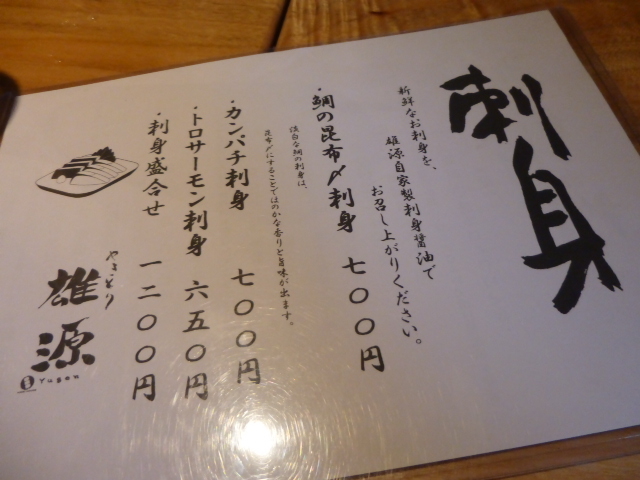 刺身
新鮮なお刺身を、
雄源自家製刺身醤油で
お召し上がりください。
・鯛の昆布〆刺身 七〇〇円
淡白な鯛の刺身は、
昆布〆にすることでほのかな香りと旨味が出ます。
・カンパチ刺身 七〇〇円
・トロサーモン刺身 六五〇円
・刺身盛合せ 一二〇〇円
やきとり
雄源
Yugen